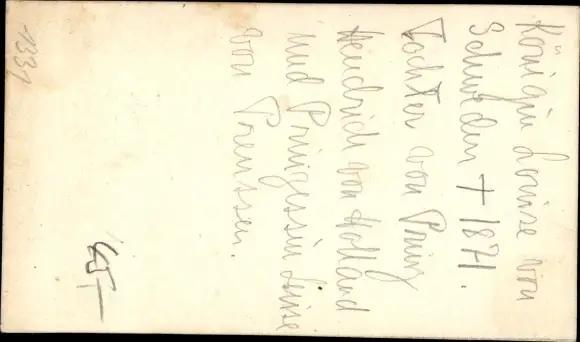 Königin Louise von
Schweden † 1871.
Tochter von Prinz
Hendrich von Holland
und Prinzessin Luise
von Preussen.
65,—
1331